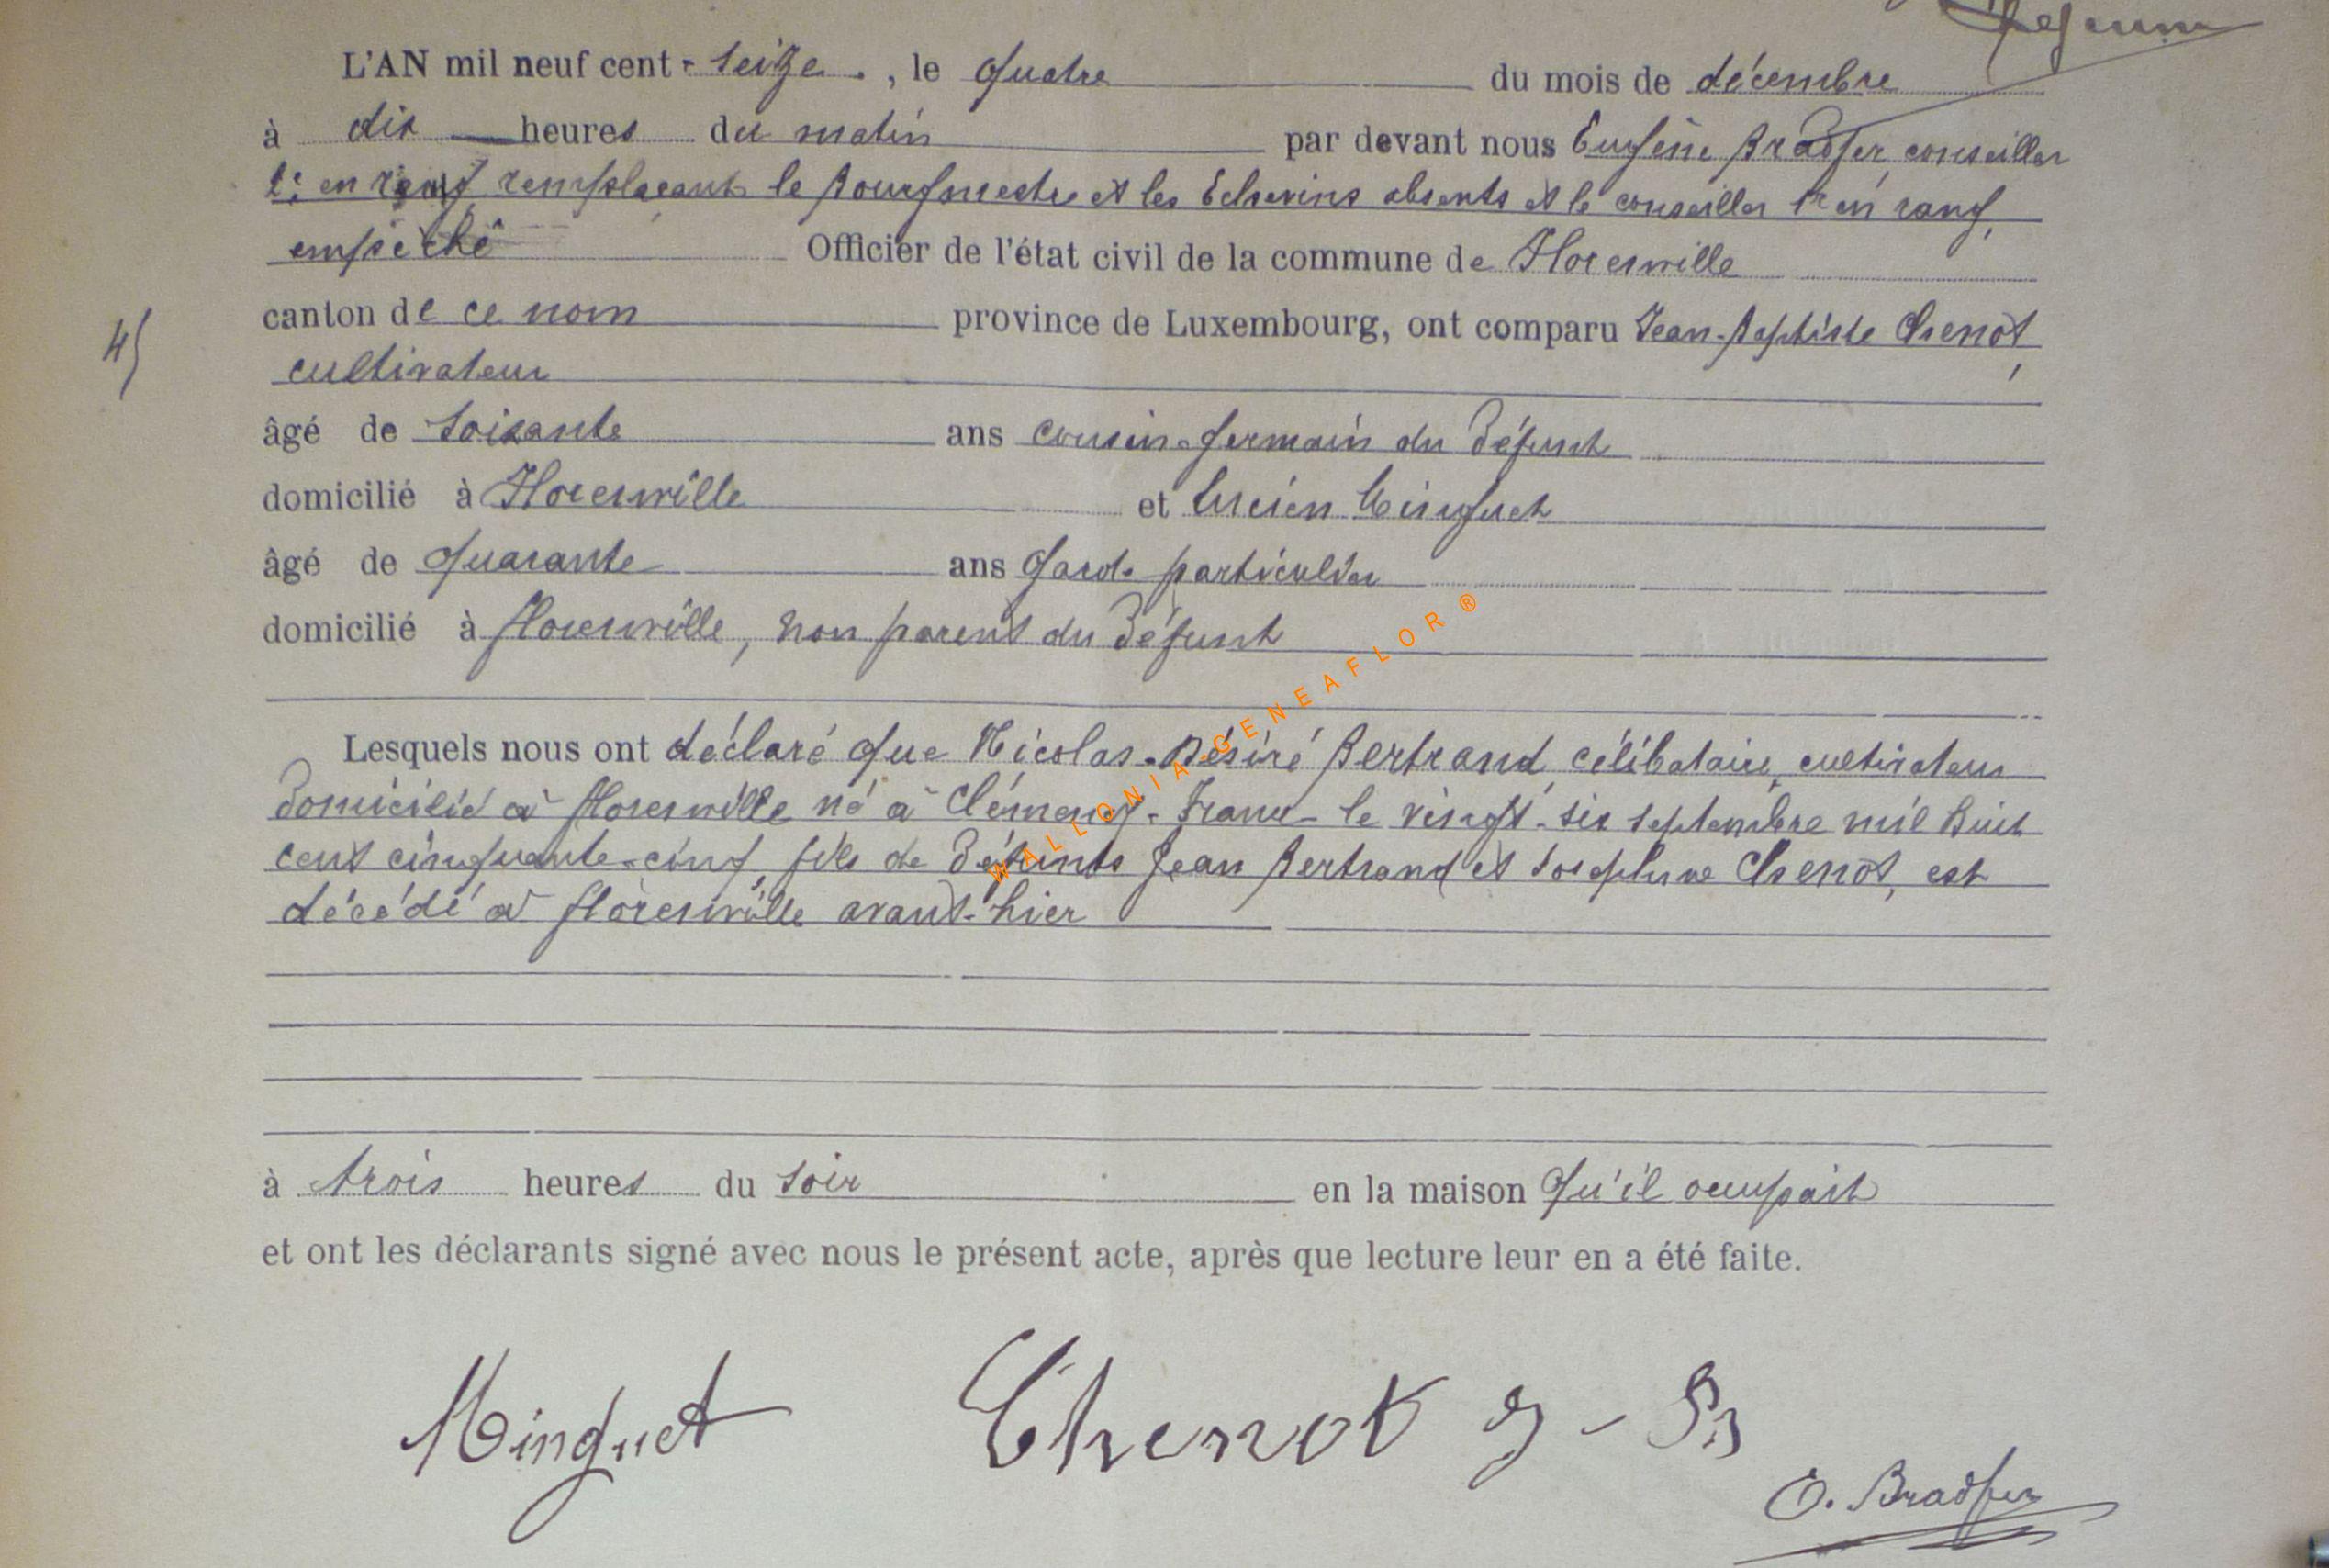 L'AN mil neuf cent - seize . , le quatre du mois de décembre
à dix heures du matin par devant nous Eugène Bradfer, conseiller
2e en rang, remplaçant le Bourgmestre et les Echevins absents et le conseiller 1er en rang,
empêché Officier de l'état civil de la commune de Florenville
canton de ce nom province de Luxembourg, ont comparu Jean-Baptiste Chenot,
45
cultivateur
âgé de soixante ans cousin-germain du défunt
domicilié à Florenville et Lucien Minguet
âgé de quarante ans garde particulier
domicilié à Florenville, non parent du défunt
Lesquels nous ont déclaré que Nicolas-Désiré Bertrand, célibataire, cultivateur
domicilié à Florenville né à Clémency - France - le vingt-six septembre mil huit
cent cinquante-cinq, fils de défunts Jean Bertrand et Joséphine Chenot, est
décédé à Florenville avant-hier
WALLONIA GENEAFLOR ®
à trois heures du soir en la maison qu'il occupait
et ont les déclarants signé avec nous le présent acte, après que lecture leur en a été faite.
Minguet Chenot J - B
E. Bradfer